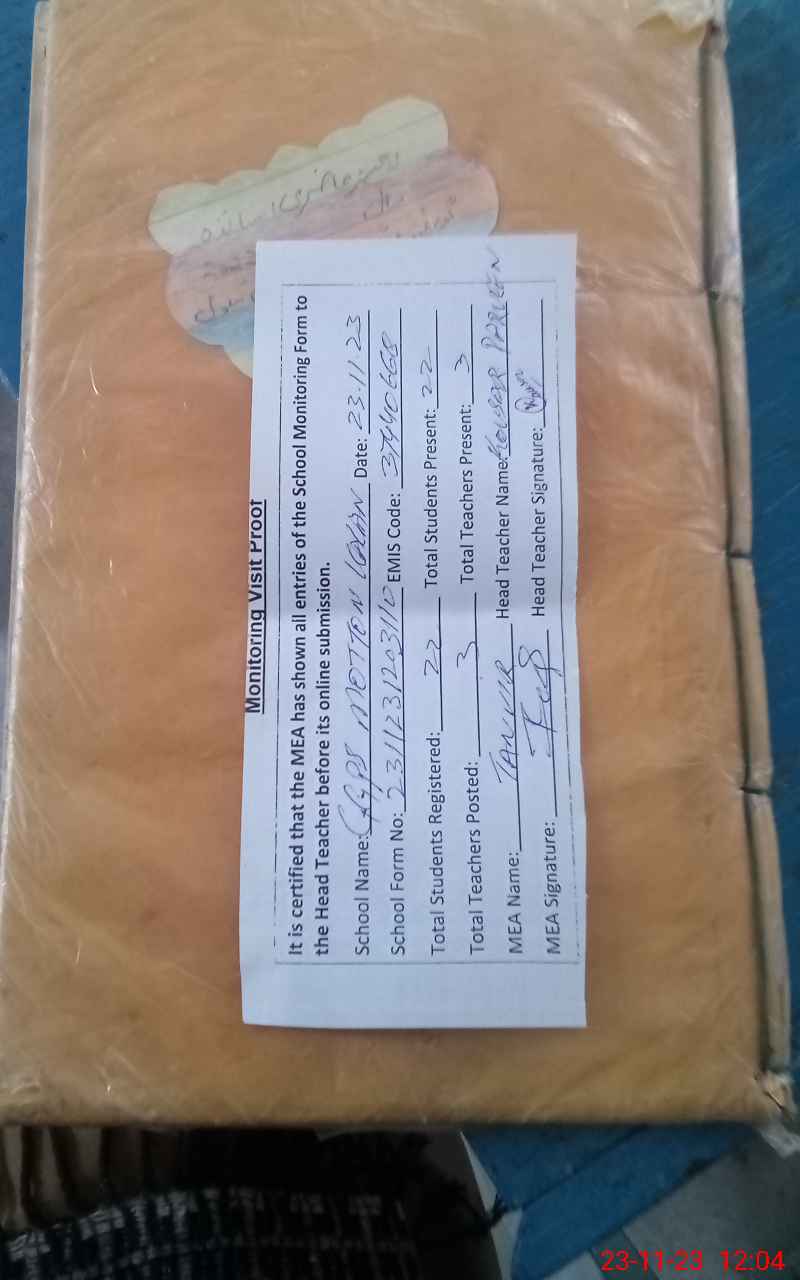 Monitoring Visit Proof
It is certified that the MEA has shown all entries of the School Monitoring Form to
the Head Teacher before its online submission.
School Name: GGPS MOTTON Date: 23.11.23
School Form No: EMIS Code: 37440668
Total Students Registered: 22 Total Students Present: 22
Total Teachers Posted: 3 Total Teachers Present: 3
MEA Name: TANVIR Head Teacher Name: KOUSAR PARVEEN
MEA Signature: Head Teacher Signature:
23-11-23 12:04